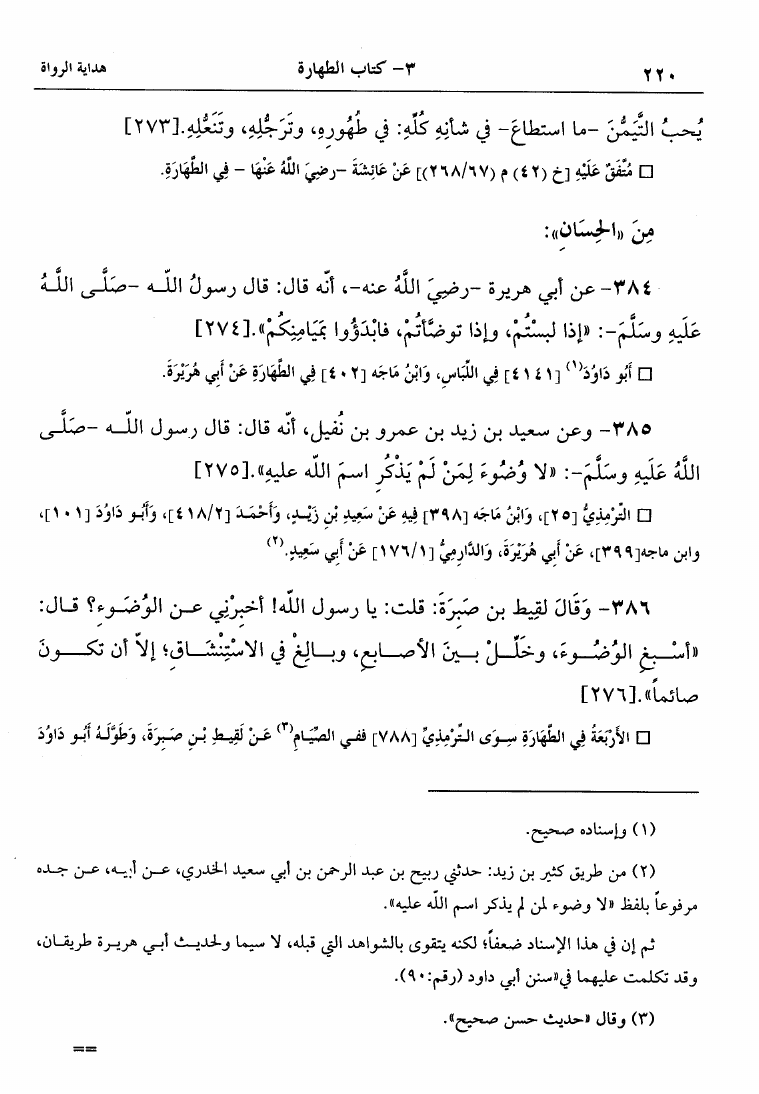 ٢٢٠ ٣- كتاب الطهارة هداية الرواة
يُحبُّ التَّيَمُّنَ -ما استطاعَ- في شأنِهِ كُلِّهِ: في طُهُورِهِ، وتَرَجُّلِهِ، وتَنَعُّلِهِ.[٢٧٣]
□ مُتَّفَقٌ عَلَيْهِ [خ (٤٢) م (٢٦٨/٦٧)] عَنْ عَائِشَةَ -رضِيَ اللَّهُ عَنْهَا - فِي الطَّهَارَةِ.
مِنَ «الحِسَانِ»:
٣٨٤- عن أبي هريرة -رضِيَ اللَّهُ عنه-، أنّه قال: قال رسولُ اللّه -صَلَّى اللَّهُ
عَلَيهِ وسَلَّمَ-: «إذا لبسْتُمْ، وإذا توضَّأتُمْ، فابْدَؤُوا بِمَيَامِنِكُمْ».[٢٧٤]
□ أَبُو دَاوُدَ(١) [٤١٤١] فِي اللِّبَاسِ، وَابْنُ مَاجَه [٤٠٢] فِي الطَّهَارَةِ عَنْ أَبِي هُرَيْرَةَ.
٣٨٥- وعن سعيد بن زيد بن عمرو بن نُفيل، أنّه قال: قال رسول اللّه -صَلَّى
اللَّهُ عَلَيهِ وسَلَّمَ-: «لا وُضُوءَ لِمَنْ لَمْ يَذْكُرِ اسمَ اللّه عليهِ».[٢٧٥]
□ التِّرْمِذِيُّ [٢٥]، وَابْنُ مَاجَه [٣٩٨] فِيهِ عَنْ سَعِيدِ بْنِ زَيْدٍ، وَأَحْمَدَ [٤١٨/٢]، وَأَبُو دَاوُدَ [١٠١]،
وابن ماجه[٣٩٩]، عَنْ أَبِي هُرَيْرَةَ، وَالدَّارِمِيُّ [١٧٦/١] عَنْ أَبِي سَعِيدٍ.(٢)
٣٨٦- وَقَالَ لقيط بن صَبِرَةَ: قلت: يا رسول اللّه! أخبرْني عن الوُضُوء؟ قال:
«أسْبِغِ الوُضُوءَ، وخَلِّلْ بينَ الأصابعِ، وبالِغْ في الاسْتِنْشَاقِ؛ إلاّ أن تكونَ
صائماً».[٢٧٦]
□ الأَرْبَعَةُ فِي الطَّهَارَةِ سِوَى التِّرْمِذِيِّ [٧٨٨] ففي الصِّيَامِ(٣) عَنْ لَقِيطِ بْنِ صَبِرَةَ، وَطَوَّلَهُ أَبُو دَاوُدَ
(١) وإسناده صحيح.
(٢) من طريق كثير بن زيد: حدثني ربيح بن عبد الرحمن بن أبي سعيد الخدري، عن أبيه، عن جده
مرفوعاً بلفظ «لا وضوء لمن لم يذكر اسم اللّه عليه».
ثم إن في هذا الإسناد ضعفاً؛ لكنه يتقوى بالشواهد التي قبله، لا سيما ولحديث أبي هريرة طريقان،
وقد تكلمت عليهما في«سنن أبي داود (رقم:٩٠).
(٣) وقال «حديث حسن صحيح».
==